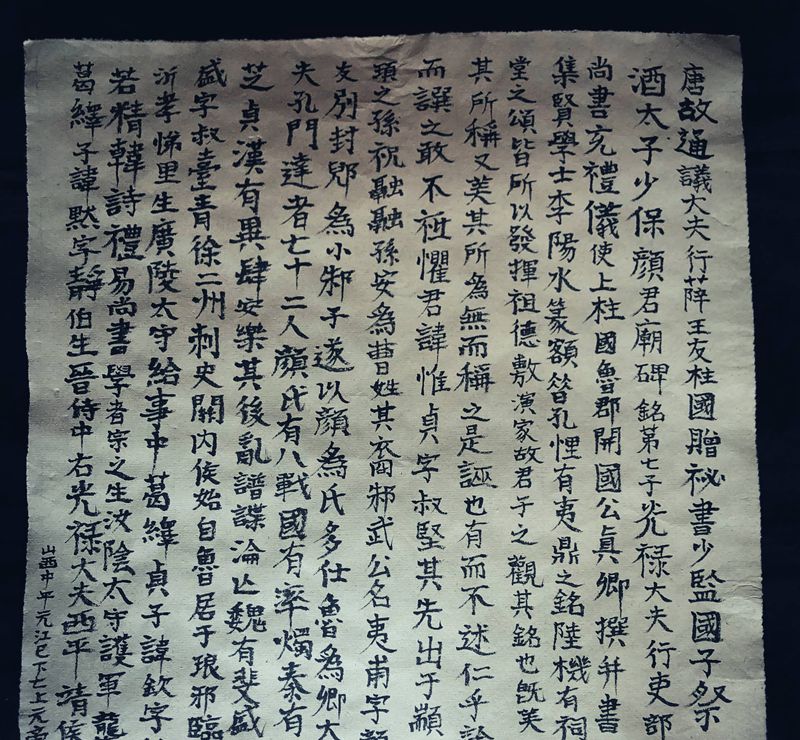 唐故通議大夫行薛王友柱國贈祕書少監國子祭
酒太子少保顏君廟碑銘第七子光祿大夫行吏部
尚書充禮儀使上柱國魯郡開國公真卿撰并書
集賢學士李陽冰篆額昔孔悝有夷鼎之銘陸機有祠
堂之頌皆所以發揮祖德敷演家故君子之觀其銘也既美
其所稱又美其所為無而稱之是誣也有而不述仁乎論
而譔之敢不祗懼君諱惟貞字叔堅其先出于顓
頊之孫祝融融孫安為曹姓其裔邾武公名夷甫字顏
友別封郳為小邾子遂以顏為氏多仕魯為卿大
夫孔門達者七十二人顏氏有八戰國有率燭秦有
芝貞漢有異肆安樂其後亂譜諜淪亡魏有斐盛
盛字叔臺青徐二州刺史關內侯始自魯居于琅邪臨
沂孝悌里生廣陵太守給事中葛繹貞子諱欽字
若精韓詩禮易尚書學者宗之生汝陰太守護軍襲
葛繹子諱默字靜伯生晉侍中右光祿大夫西平靖侯